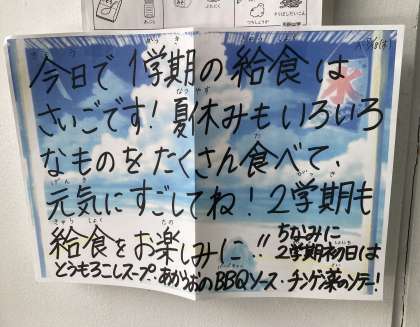 今日で1学期の給食は
さいごです!夏休みもいろいろ
なものをたくさん食べて、
元気にすごしてね!2学期も
給食をお楽しみに!!
ちなみに
2学期初日は
とうもろこしスープ・あかうおのBBQソース・チンゲン菜のソテー!
氷